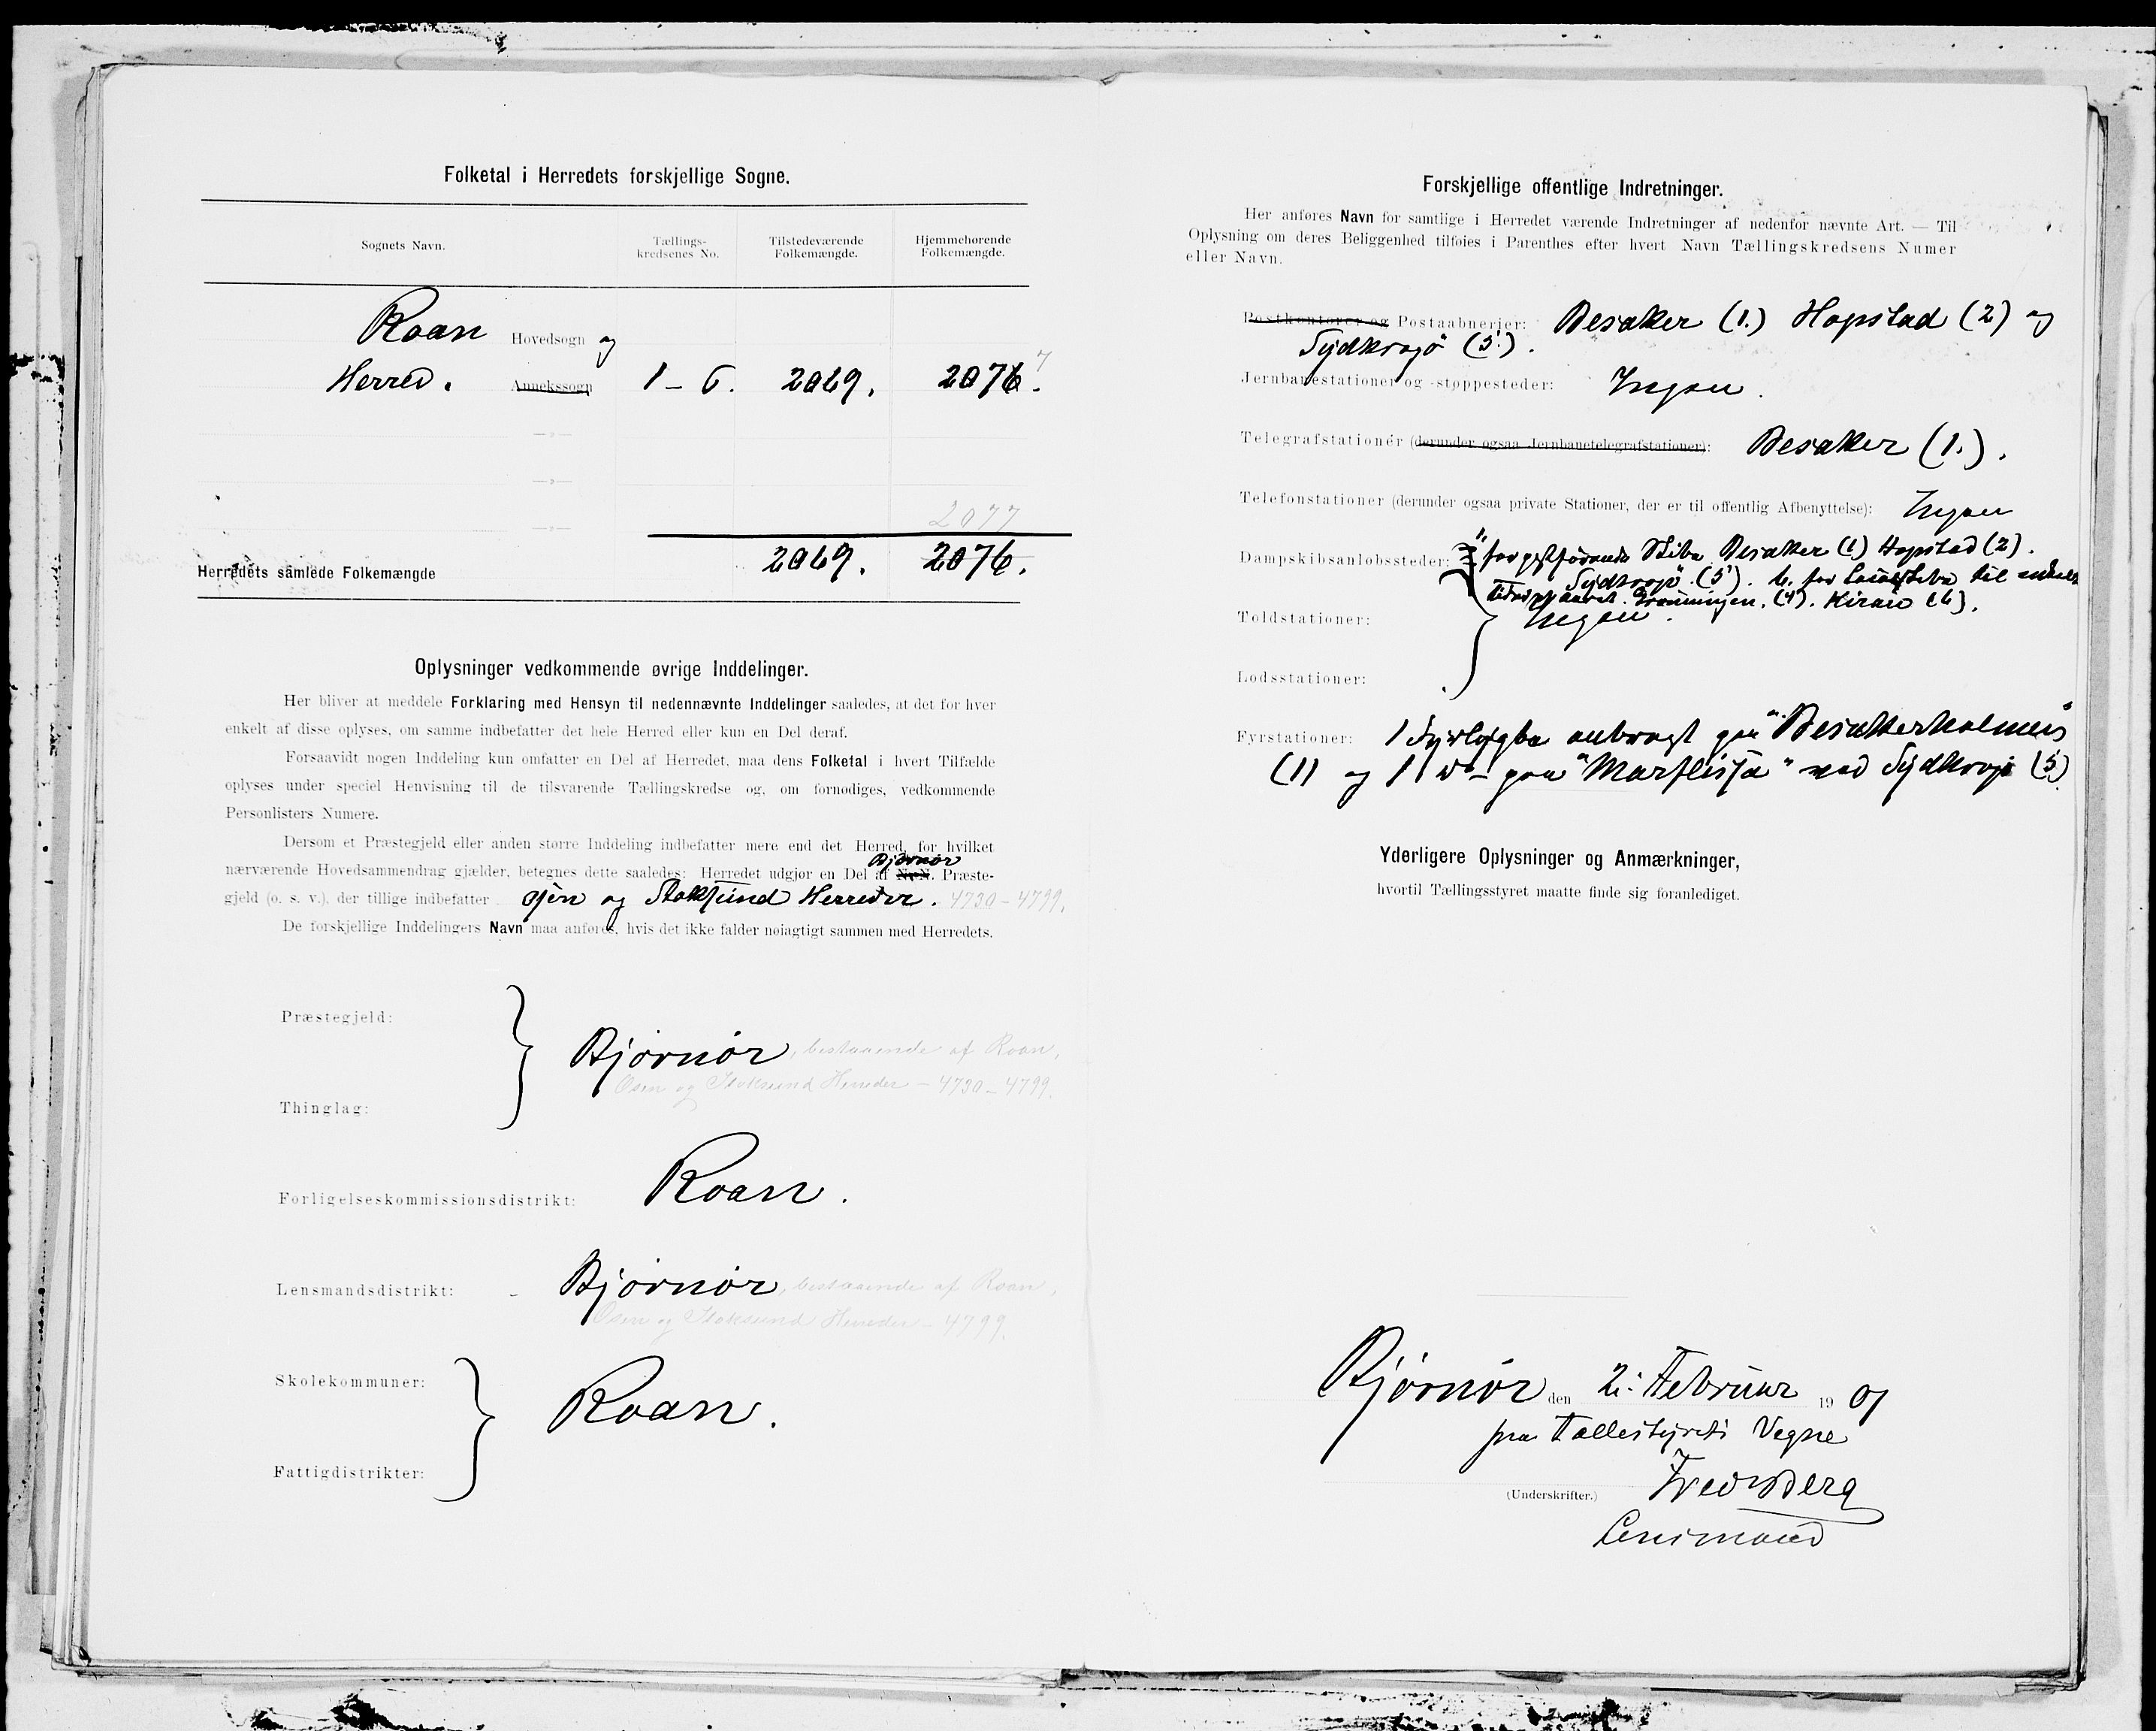 Folketal i Herredets forskjellige Sogne.
Sognets Navn.
Tællings-
kredsenes No.
Tilstedeværende
Folkemængde.
Hjemmehørende
Folkemængde.
Roan Hovedsogn og
Herred. Annekssogn 1 - 6. 2069. 2076. 7
—»—
—»—
2077
—»—
Herredets samlede Folkemængde 2069. 2076.
Oplysninger vedkommende øvrige Inddelinger.
Her bliver at meddele Forklaring med Hensyn til nedennævnte Inddelinger saaledes, at det for hver
enkelt af disse oplyses, om samme indbefatter det hele Herred eller kun en Del deraf.
Forsaavidt nogen Inddeling kun omfatter en Del af Herredet, maa dens Folketal i hvert Tilfælde
oplyses under speciel Henvisning til de tilsvarende Tællingskredse og, om fornødiges, vedkommende
Personlisters Numere.
Dersom et Præstegjeld eller anden større Inddeling indbefatter mere end det Herred, for hvilket
Bjørnør
nærværende Hovedsammendrag gjælder, betegnes dette saaledes: Herredet udgjør en Del af N.N. Præste-
gjeld (o. s. v.), der tillige indbefatter Osen og Stoksund Herreder. 4730 - 4799.
De forskjellige Inddelingers Navn maa anføres, hvis det ikke falder nøiagtigt sammen med Herredets.
Præstegjeld:
Bjørnør, bestaaende af Roan,
Osen og Stoksund Herreder - 4730 - 4799.
Thinglag:
Forligelseskommissionsdistrikt: Roan.
Lensmandsdistrikt: Bjørnør, bestaaende af Roan,
Osen og Stoksund Herreder - 4799.
Skolekommuner:
Roan.
Fattigdistrikter:
Forskjellige offentlige Indretninger.
Her anføres Navn for samtlige i Herredet værende Indretninger af nedenfor nævnte Art. — Til
Oplysning om deres Beliggenhed tilføies i Parenthes efter hvert Navn Tællingskredsens Numer
eller Navn.
Postkontorer og Postaabnerier: Besaker (1.) Hopstad (2) og
Sydkrogø (5.).
Jernbanestationer og -støppesteder: Ingen.
Telegrafstationer (derunder ogsaa Jernbanetelegrafstationer): Besaker (1.).
Telefonstationer (derunder ogsaa private Stationer, der er til offentlig Afbenyttelse): Ingen
Dampskibsanløbssteder: a for postførende Skibe Besaker (1) Hopstad (2).
Sydkrogø (5). b. for Lokalskibe til enkelte
Tider af aaret. (4). Kiran (6).
Toldstationer: Ingen.
Lodsstationer:
Fyrstationer: 1 Fyrlygte anbragt paa "Besakerholmen"
(1) og 1 do - paa "Marflesja" ved Sydkrogø (5).
Yderligere Oplysninger og Anmærkninger,
hvortil Tællingsstyret maatte finde sig foranlediget.
Bjørnør den 2. Februar 1901
paa Tællestyrets Vegne
Fredr Berg
(Underskrifter.)
Lensmand